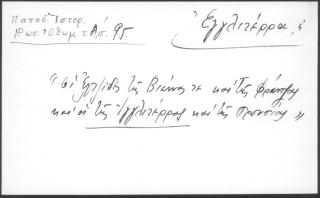 Παπαδ. Ιστορ.
Ρωσ. Οθωμ τ. Α'. 95.
Ἐγγλιτέρρα, ἡ
"οἱ ἐλπίδες τῆς Βιέννας καὶ τῆς Φράντζας
καὶ οἱ τῆς Ἐγγλιτέρρας καὶ τῆς Προυσίας"